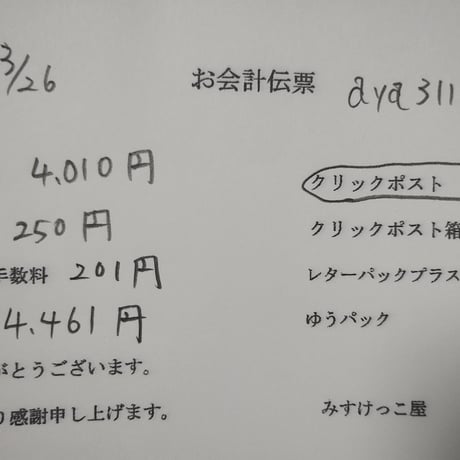 3/26
お会計伝票 aya311
4.010円
クリックポスト
250円
クリックポスト箱
手数料 201円
レターパックプラス
4.461円
ゆうパック
がとうございます。
り感謝申し上げます。
みすけっこ屋